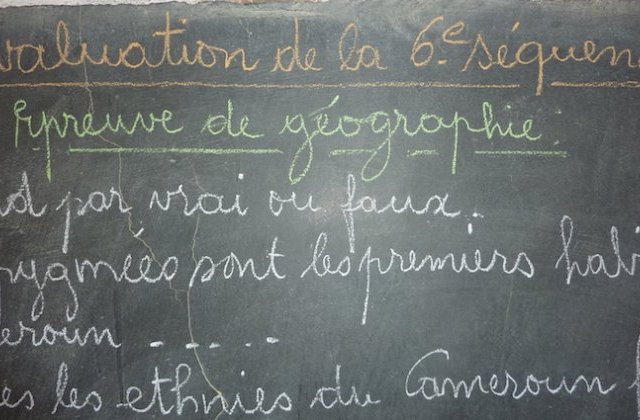 valuation de la 6e séquen
Epreuve de géographie:
nd par vrai ou faux.
pygmées sont les premiers habi
eroun - - - - -
es les ethnies du Cameroun